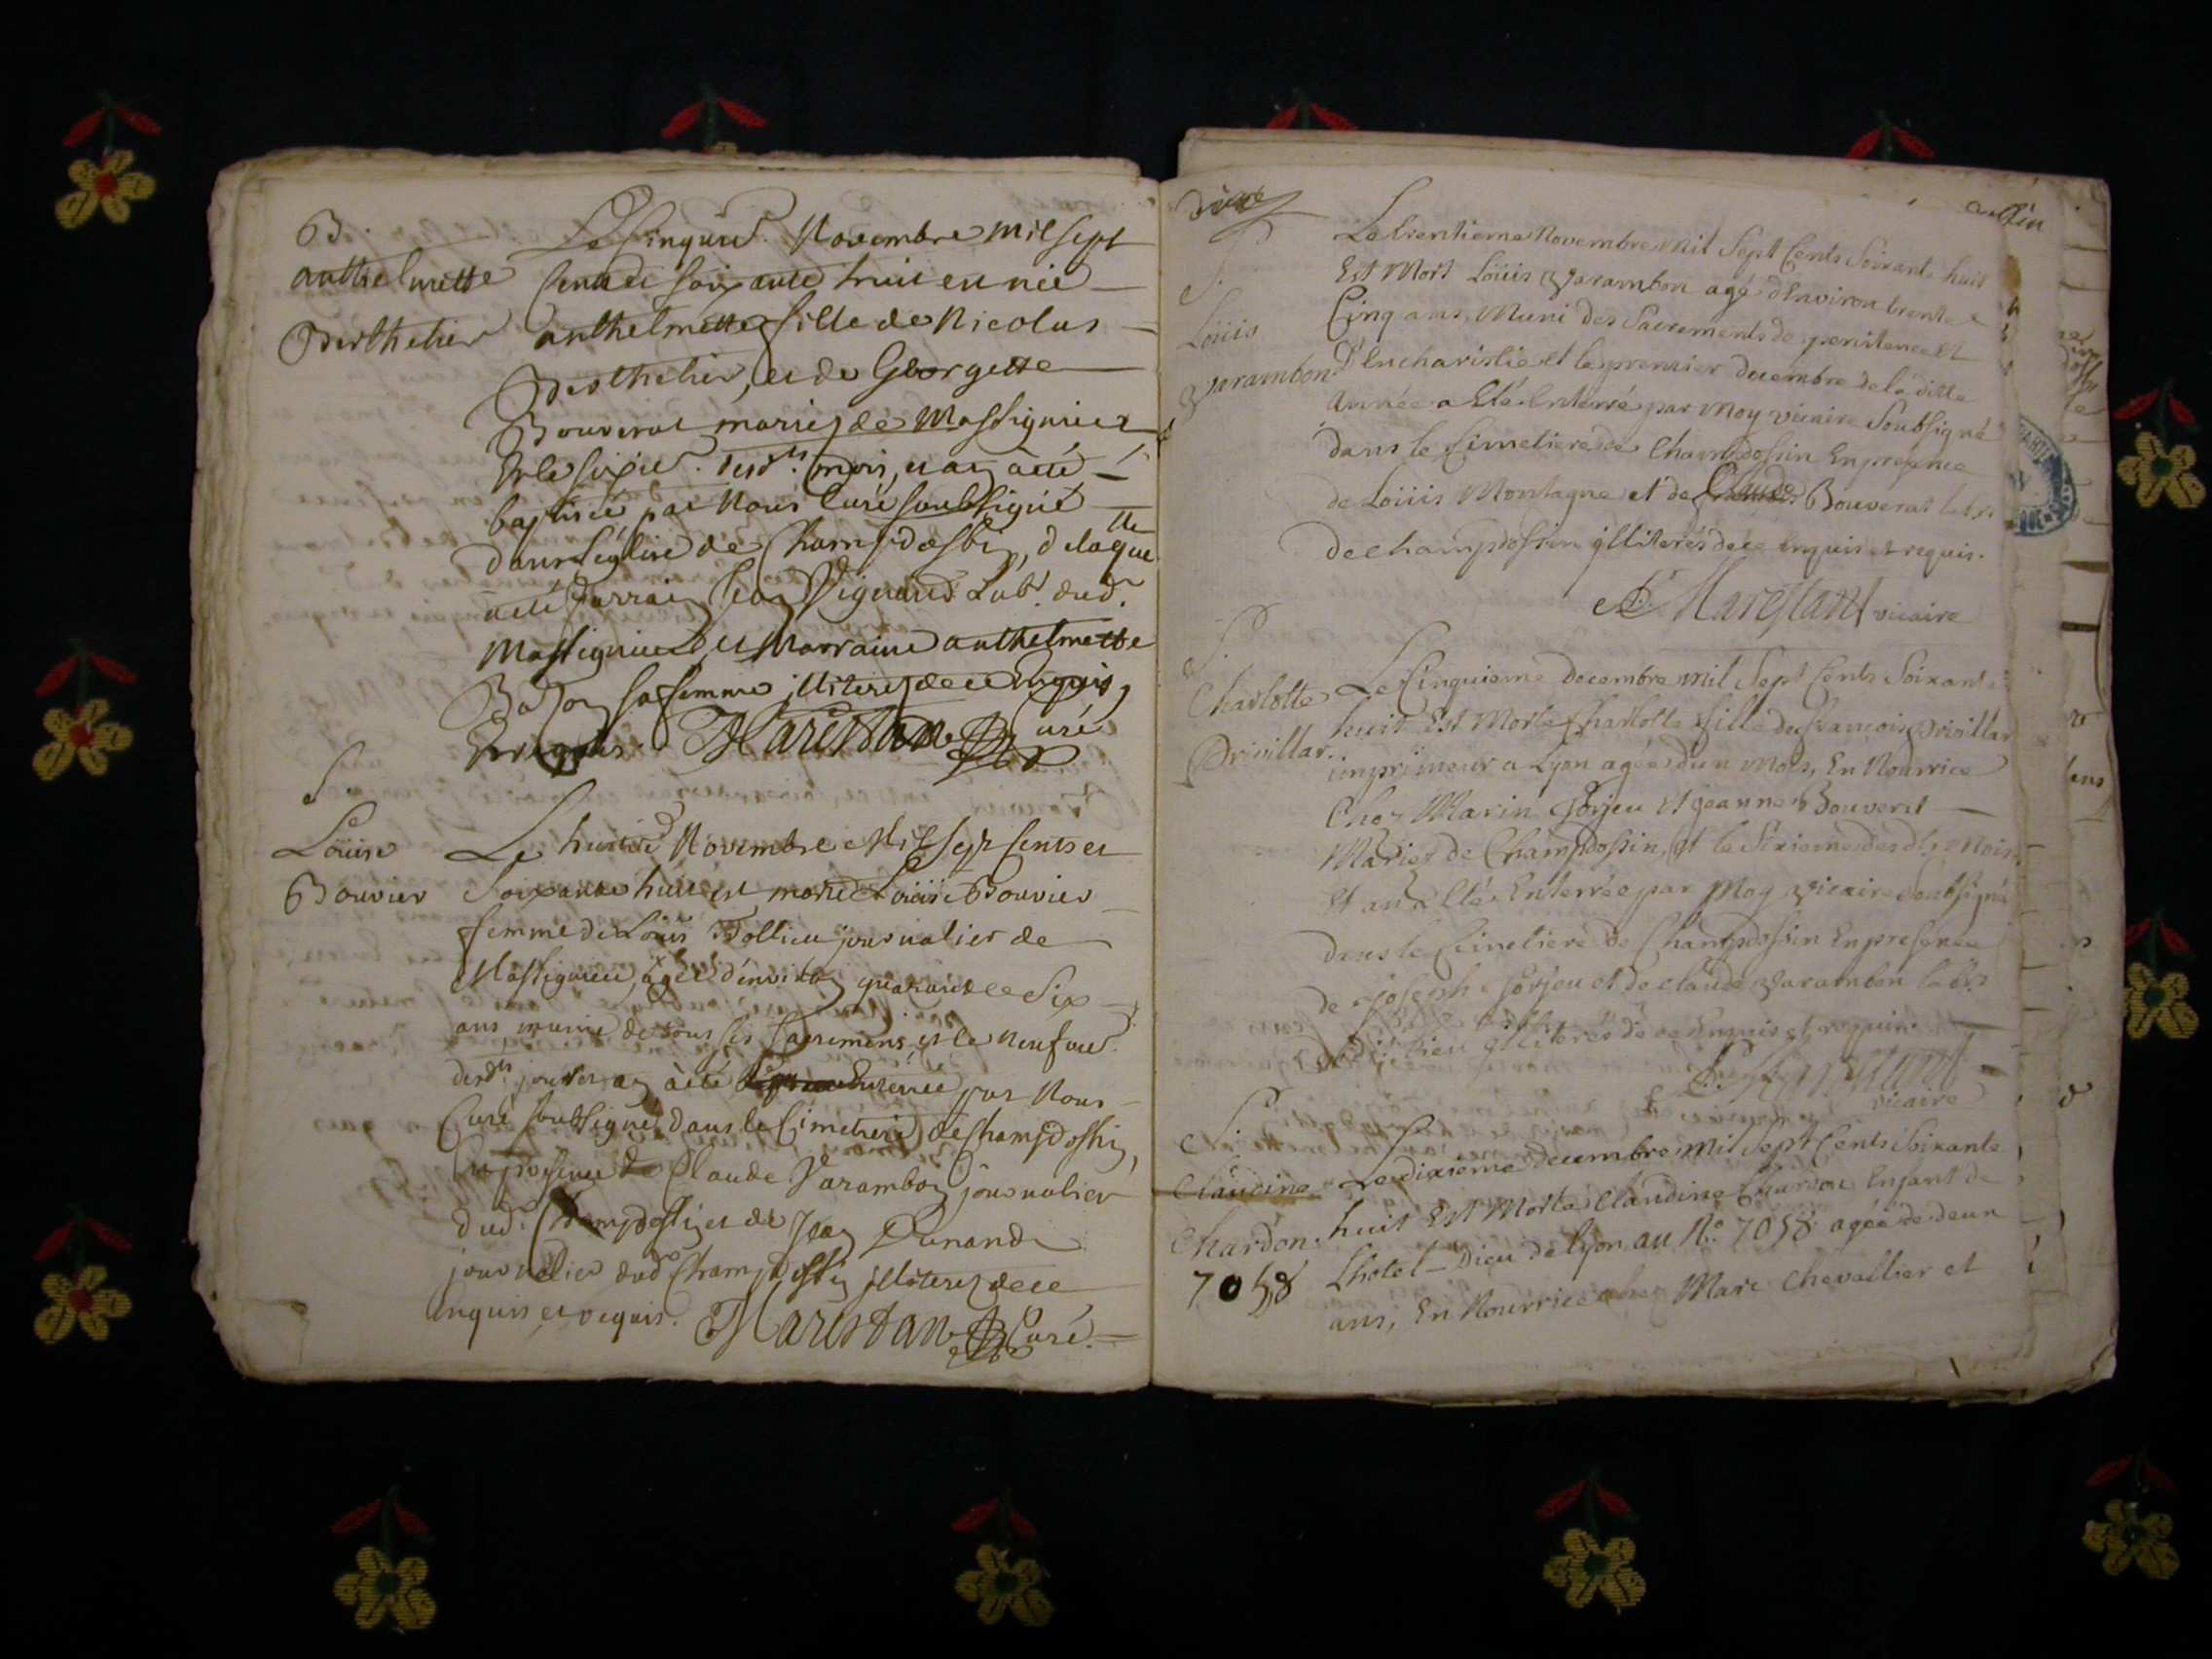 B.
anthelmette
Berthelier
Le Cinquie. Novembre mil sept
Cents et soixante huit est née
anthelmette fille de Nicolas
Berthelier, et de Georgette
Bouverat mariez de Massignieu
Et le sixie. desd.ts mois, et an à été
baptisée par Nous Curé soubsigné
dans L'eglise de Champdossin, de laqu.lle
à été Parrain Jean Vignand Lab.r dud.
Massignieu, et Marraine anthelmette
sa femme illiterez de ce Enquis,
Et requis. Marestan Curé
S.
Loüise
Bouvier
Le huitie. Novembre Mil Sept Cents et
Soixante huit est morte Loüise Bouvier
femme de Loüis Tollieu journalier de
Massignieu, agée d'environ quarante Six
ans munie de tous ses Sacremens, et le neufvie.
desd.ts jour et an à été Enterrée par Nous
Curé soubsigné dans le Cimetiere de Champdossin,
En presence de Claude Varambon journalier
dud. Champdossin et de Jean Dunand
journalier dud. Champdossin illiterez de ce
Enquis et requis. Marestan Curé.
S.
Loüis
Varambon
Le trentieme Novembre mil Sept Cents Soixante huit
Est Mort Loüis Varambon agé d'Environ trente
Cinq ans, Muni des Sacrements de penitence et
D'Eucharistie et le premier decembre de la ditte
Année a Eté Enterré par Moy vicaire Soubsigné
dans le Cimetiere de Champdossin En presence
de Loüis Montagne et de Claude Bouverat
de champdossin illiterés de ce Enquis et requis.
Marestant vicaire
S.
Charlotte
Privillar.
Le Cinquieme decembre mil Sept Cents Soixante
huit Est Morte Charlotte fille de francois Privillar
imprimeur a Lyon agée d'un Mois, En Nourrice
Chez Marin Gorjeu Et jeanne Bouverat
Mariez de Champdossin, et le Sixieme desd.ts Mois
Et an a Eté Enterrée par Moy vicaire Soubsigné
dans le Cimetiere de Champdossin En presence
de joseph Gorjeu et de claude Varambon lab.rs
lieu illiterés de ce Enquis et requis.
Marestant
vicaire
S.
Claudine
Chardon.
7058
Le dixieme decembre mil Sept Cents Soixante
huit Est Morte Claudine Chardon Enfant de
Lhotel-Dieu de lyon au N.o 7058 agée de deux
ans, En Nourrice chez Marc Chevallier et